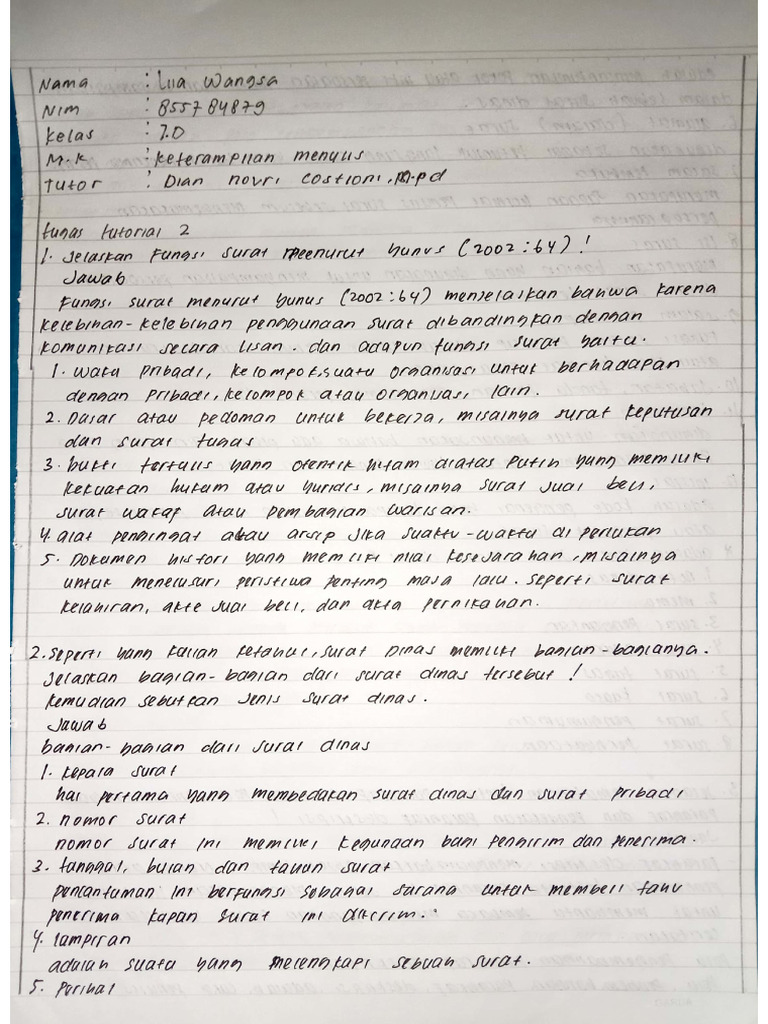 Nama : Lila Wangsa
Nim : 855784879
Kelas : 7.D
M.K : Keterampilan menulis
Tutor : Dian novri costioni, M.pd
tugas tutorial 2
1. Jelaskan fungsi surat meenurut yunus (2002:64)!
Jawab
Fungsi surat menurut yunus (2002:64) menjelaskan bahwa karena
kelebihan-kelebihan penggunaan surat dibandingkan dengan
komunikasi secara lisan. dan adapun fungsi surat yaitu.
1. wakil pribadi, kelompok, suatu organisasi untuk berhadapan
dengan pribadi, kelompok atau organisasi lain.
2. Dasar atau pedoman untuk bekerja, misalnya surat keputusan
dan surat tugas
3. bukti tertulis yang otentik hitam diatas putih yang memiliki
kekuatan hukum atau yuridis, misalnya surat jual beli,
surat wakaf atau pembagian warisan.
4. alat pengingat atau arsip jika suaktu-waktu di perlukan
5. Dokumen histori yang memiliki nilai kesejarahan, misalnya
untuk menelusuri peristiwa penting masa lalu. seperti surat
kelahiran, akte jual beli, dan akta pernikahan.
2. seperti yang kalian ketahui, surat Dinas memiliki bagian-bagianya.
Jelaskan bagian-bagian dari surat dinas tersebut!
kemudian sebutkan jenis surat dinas.
Jawab
bagian-bagian dari surat dinas
1. kepala surat
hal pertama yang membedakan surat dinas dan surat pribadi
2. nomor surat
nomor surat ini memiliki kegunaan bagi pengirim dan penerima.
3. tanggal, bulan dan tahun surat
pencantuman ini berfungsi sebagai sarana untuk memberi tahu
penerima kapan surat ini dikirim.
4. lampiran
adalah suatu yang melengkapi sebuah surat.
5. Perihal